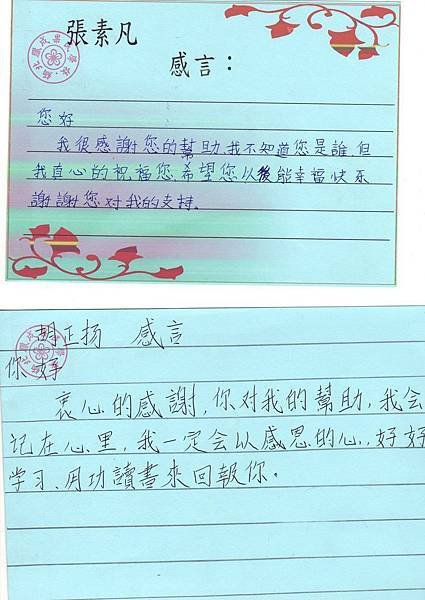 張素凡
感言：
您好
我很感謝您的幫助,我不知道您是誰,但
我直心的祝福您,希望您以後能幸福快乐
謝謝您对我的支持。
胡正扬 感言
你好
衷心的感謝,你对我的幫助,我会
记在心里,我一定会以感恩的心,好好
学习、用功讀書來回報你。